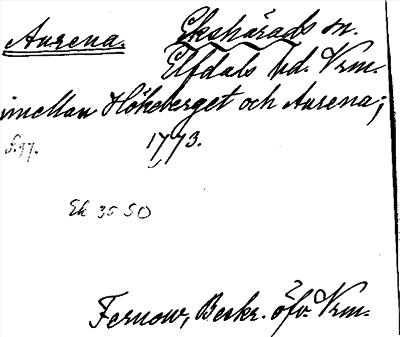 Aurena. Ekshärads sn.
Elfdals hd. Vrm.
mellan Hökberget och Aurena;
1773.
s. 97.
Ek 35 50
Fernow, Beskr. öfv. Vrm.